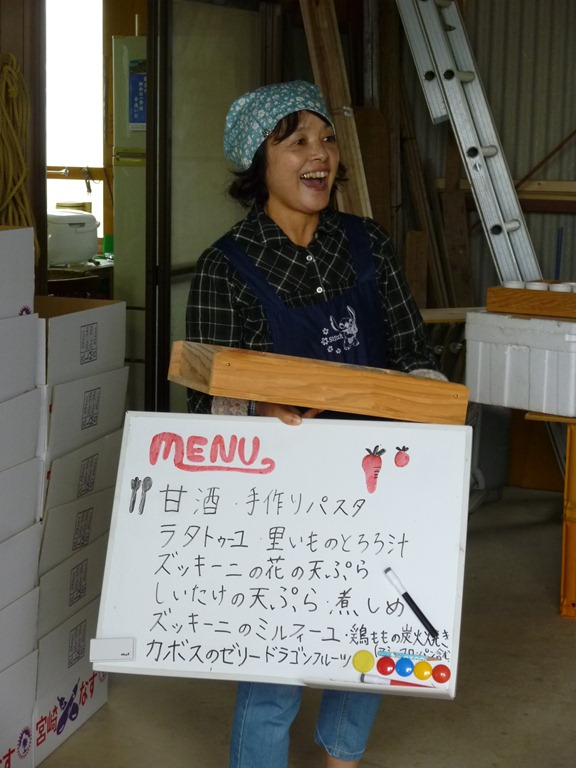 Stitch
MENU
甘酒・手作りパスタ
ラタトゥーユ・里いものとろろ汁
ズッキーニの花の天ぷら
しいたけの天ぷら・煮しめ
ズッキーニのミルフィーユ・鶏ももの炭火焼き
カボスのゼリードラゴンフルーツ
宮崎なす